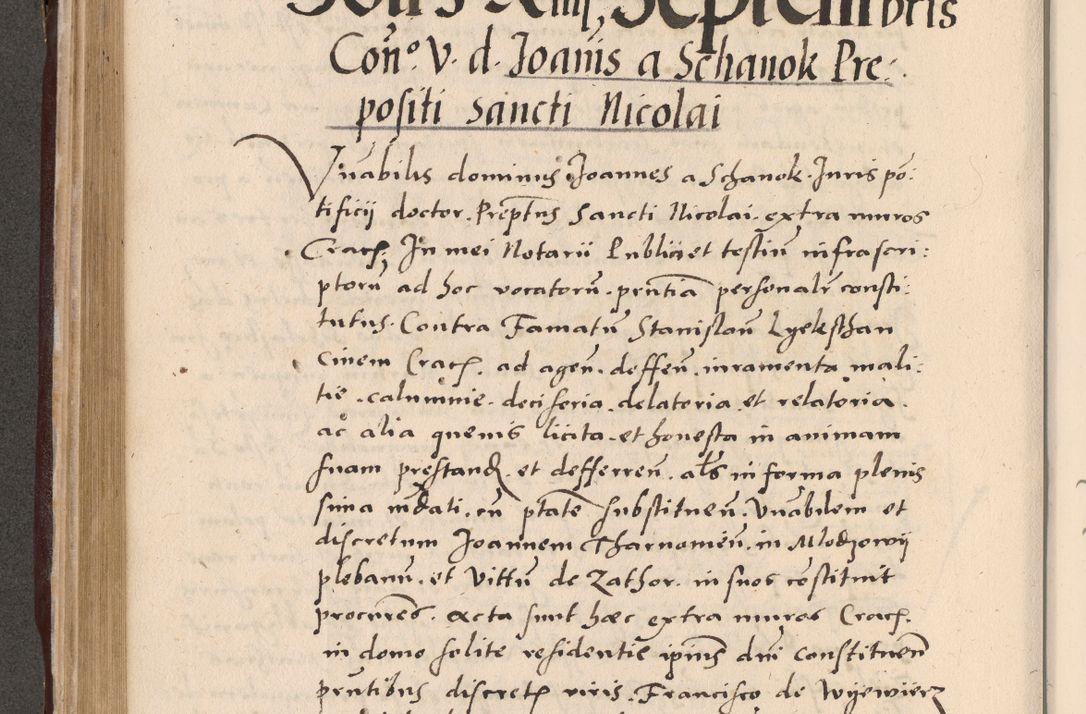 Septembris
Con° V. d. Joanīs a Schanok Pre
positi Sancti Nicolai
Vnābilis dominus Joannes a Schanok. Juris pō:
tificij doctor. Preptūs Sancti Nicolai. extra muros
Crac. In mei Notarii Publici et testiū infrascri:
ptorū ad hoc vocatorū. prntia personalr consti:
tutus. Contra Famatū Stanislaū Lyeksthan
Ciuem Crac. ad agen. deffen. iuramenta mali:
tie. calumnie. decisoria. delatoria. et relatoria.
ac alia queuis licita. et honesta in animam
suam prestand. et defferren. als in forma plenis
sima mdati. cū ptate substituen. Vnabilem et
discretum Joannem Tharnomen. in Mlodzowij
plebanū. et Vittū de Zathor. in suos cōstituit
procures. Acta sunt hæc extra muros Crac.
in domo solite residentie ipius dni constituen
prntibus discret viris. Francisco de Wyewierz